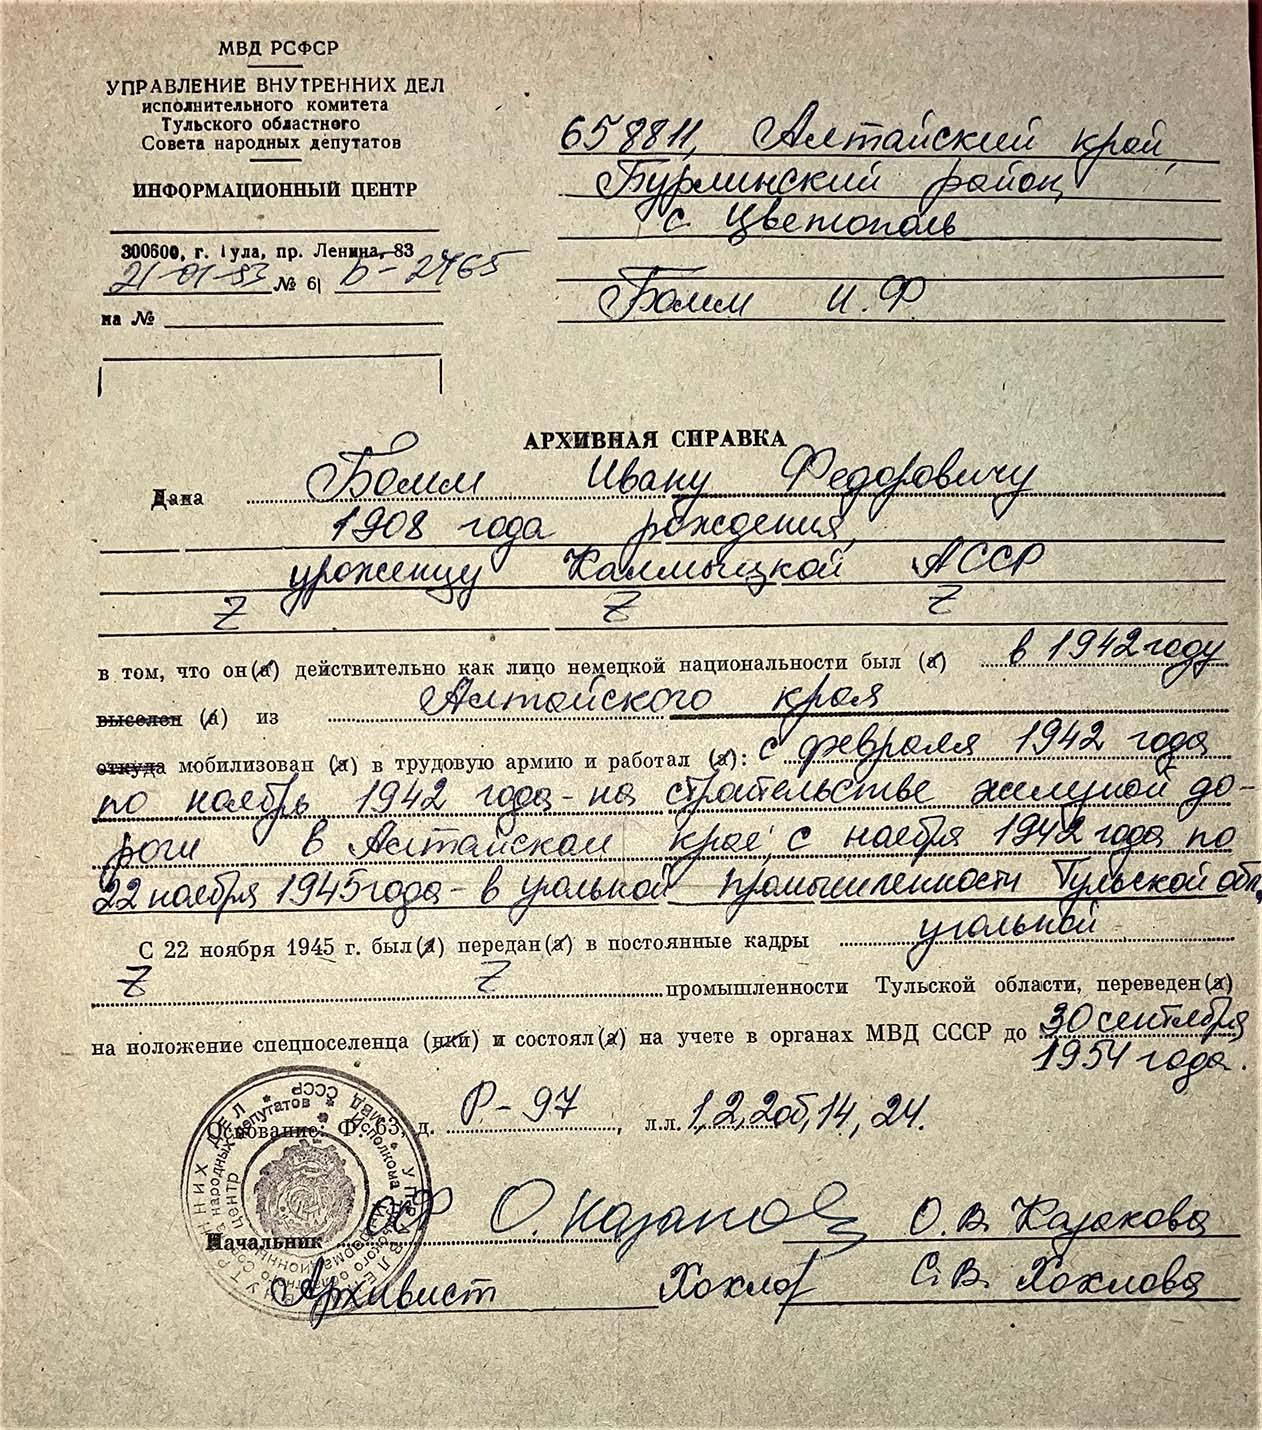 МВД РСФСР
УПРАВЛЕНИЕ ВНУТРЕННИХ ДЕЛ
исполнительного комитета
Тульского областного
Совета народных депутатов
ИНФОРМАЦИОННЫЙ ЦЕНТР
300600, г. Тула, пр. Ленина, 83
21-01-93 № 6| Б-2465
на №
658811, Алтайский край,
Бурлинский район,
с. Цветополь
Бомм И.Ф.
АРХИВНАЯ СПРАВКА
Дана Бомм Ивану Федоровичу
1908 года рождения,
уроженцу Калмыцкой АССР
Z Z Z
в том, что он(а) действительно как лицо немецкой национальности был (а) в 1942 году
выселен (а) из Алтайского края
откуда мобилизован (а) в трудовую армию и работал (а): с февраля 1942 года
по ноябрь 1942 года - на строительстве железной до-
роги в Алтайском крае, с ноября 1942 года по
22 ноября 1945 года - в угольной промышленности Тульской обл.
С 22 ноября 1945 г. был(а) передан(а) в постоянные кадры угольной
Z Z промышленности Тульской области, переведен(а)
на положение спецпоселенца (нки) и состоял(а) на учете в органах МВД СССР до 30 сентября
1954 года.
Основание: Ф. 63, д. Р-97, л.л. 1,2,2об,14,24.
Начальник О. Казакова О.В. Казакова
Архивист Хохлов С.В. Хохлова